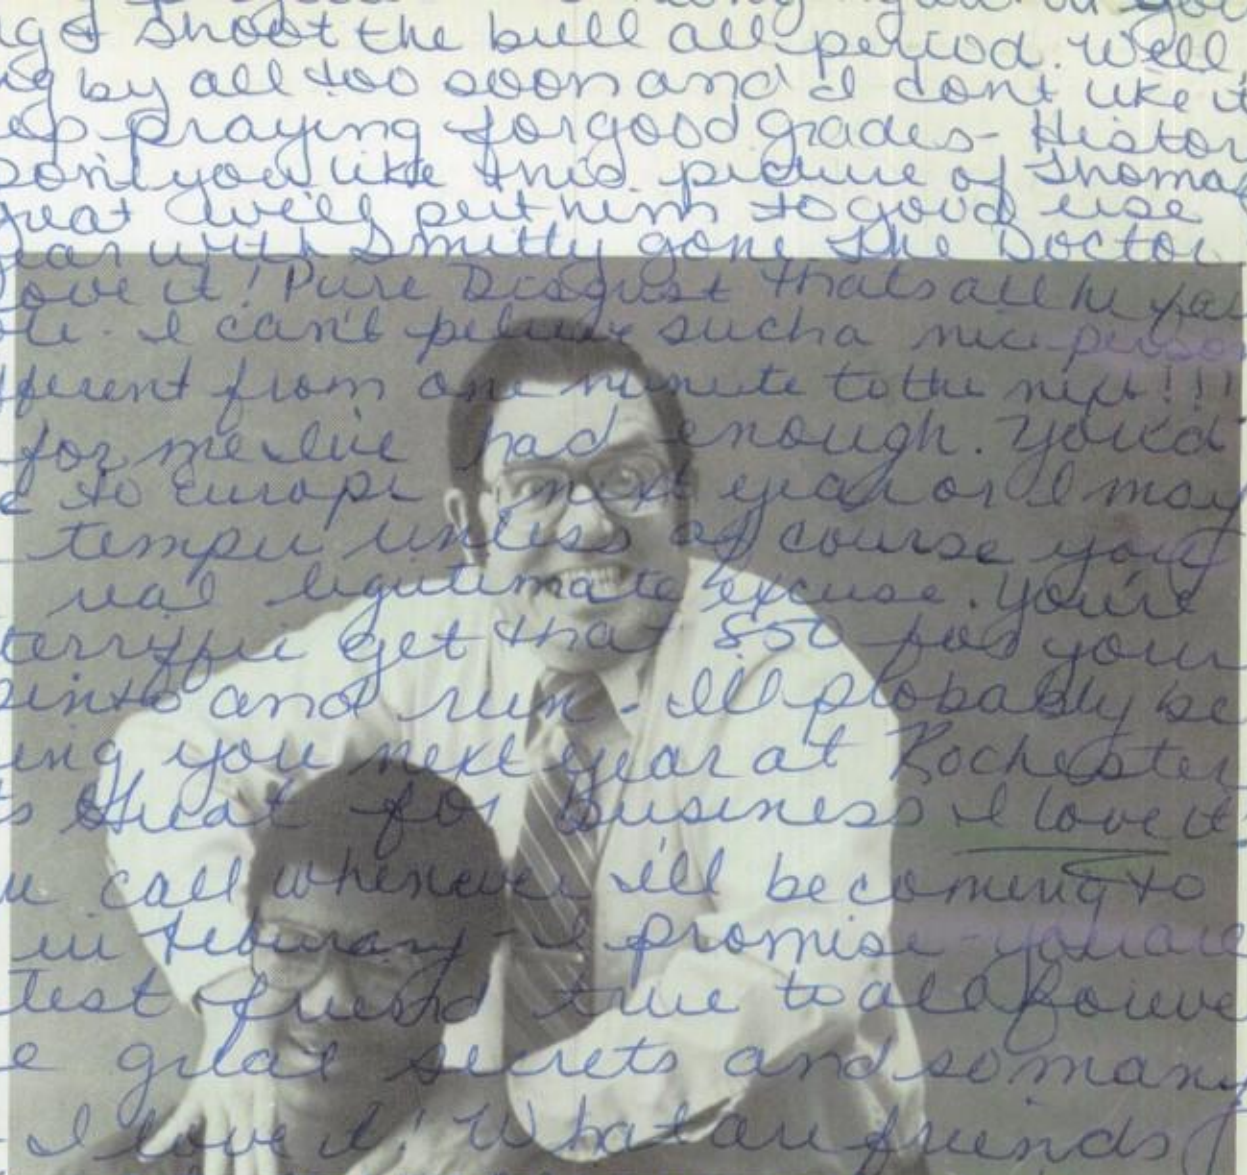 g & shoot the bull all period. Well,
ng by all too soon and I dont like it
ep praying for good grades - Histor
Dont you like this picture of Thomas
great will put him to good use
ear with Smitty gone The Doctor
love it! Pure Disgust thats all he
I can't such a nice person
fferent from one minute to the next!!!
for me Ive had enough. You'd
e to Europe next year or I may
temper unless of course you
real legitimate excuse. You're
terrific get that 850 for your
pinto and run - Ill probably be
ing you next year at Rochester
ts Great for business I love it
call whenever ill be coming to
in Feburary - I promise - you are
test friend true to all foreve
e great secrets and so many
I love it! What are friends